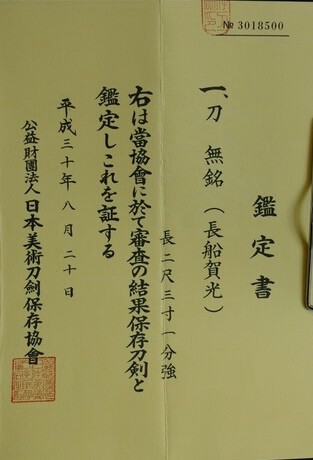 № 3018500
鑑定書
一、刀 無銘(長船賀光)
長二尺三寸一分強
右は當協會に於て審査の結果保存刀剣と
鑑定しこれを証する
平成三十年八月二十日
公益財團法人日本美術刀劍保存協會